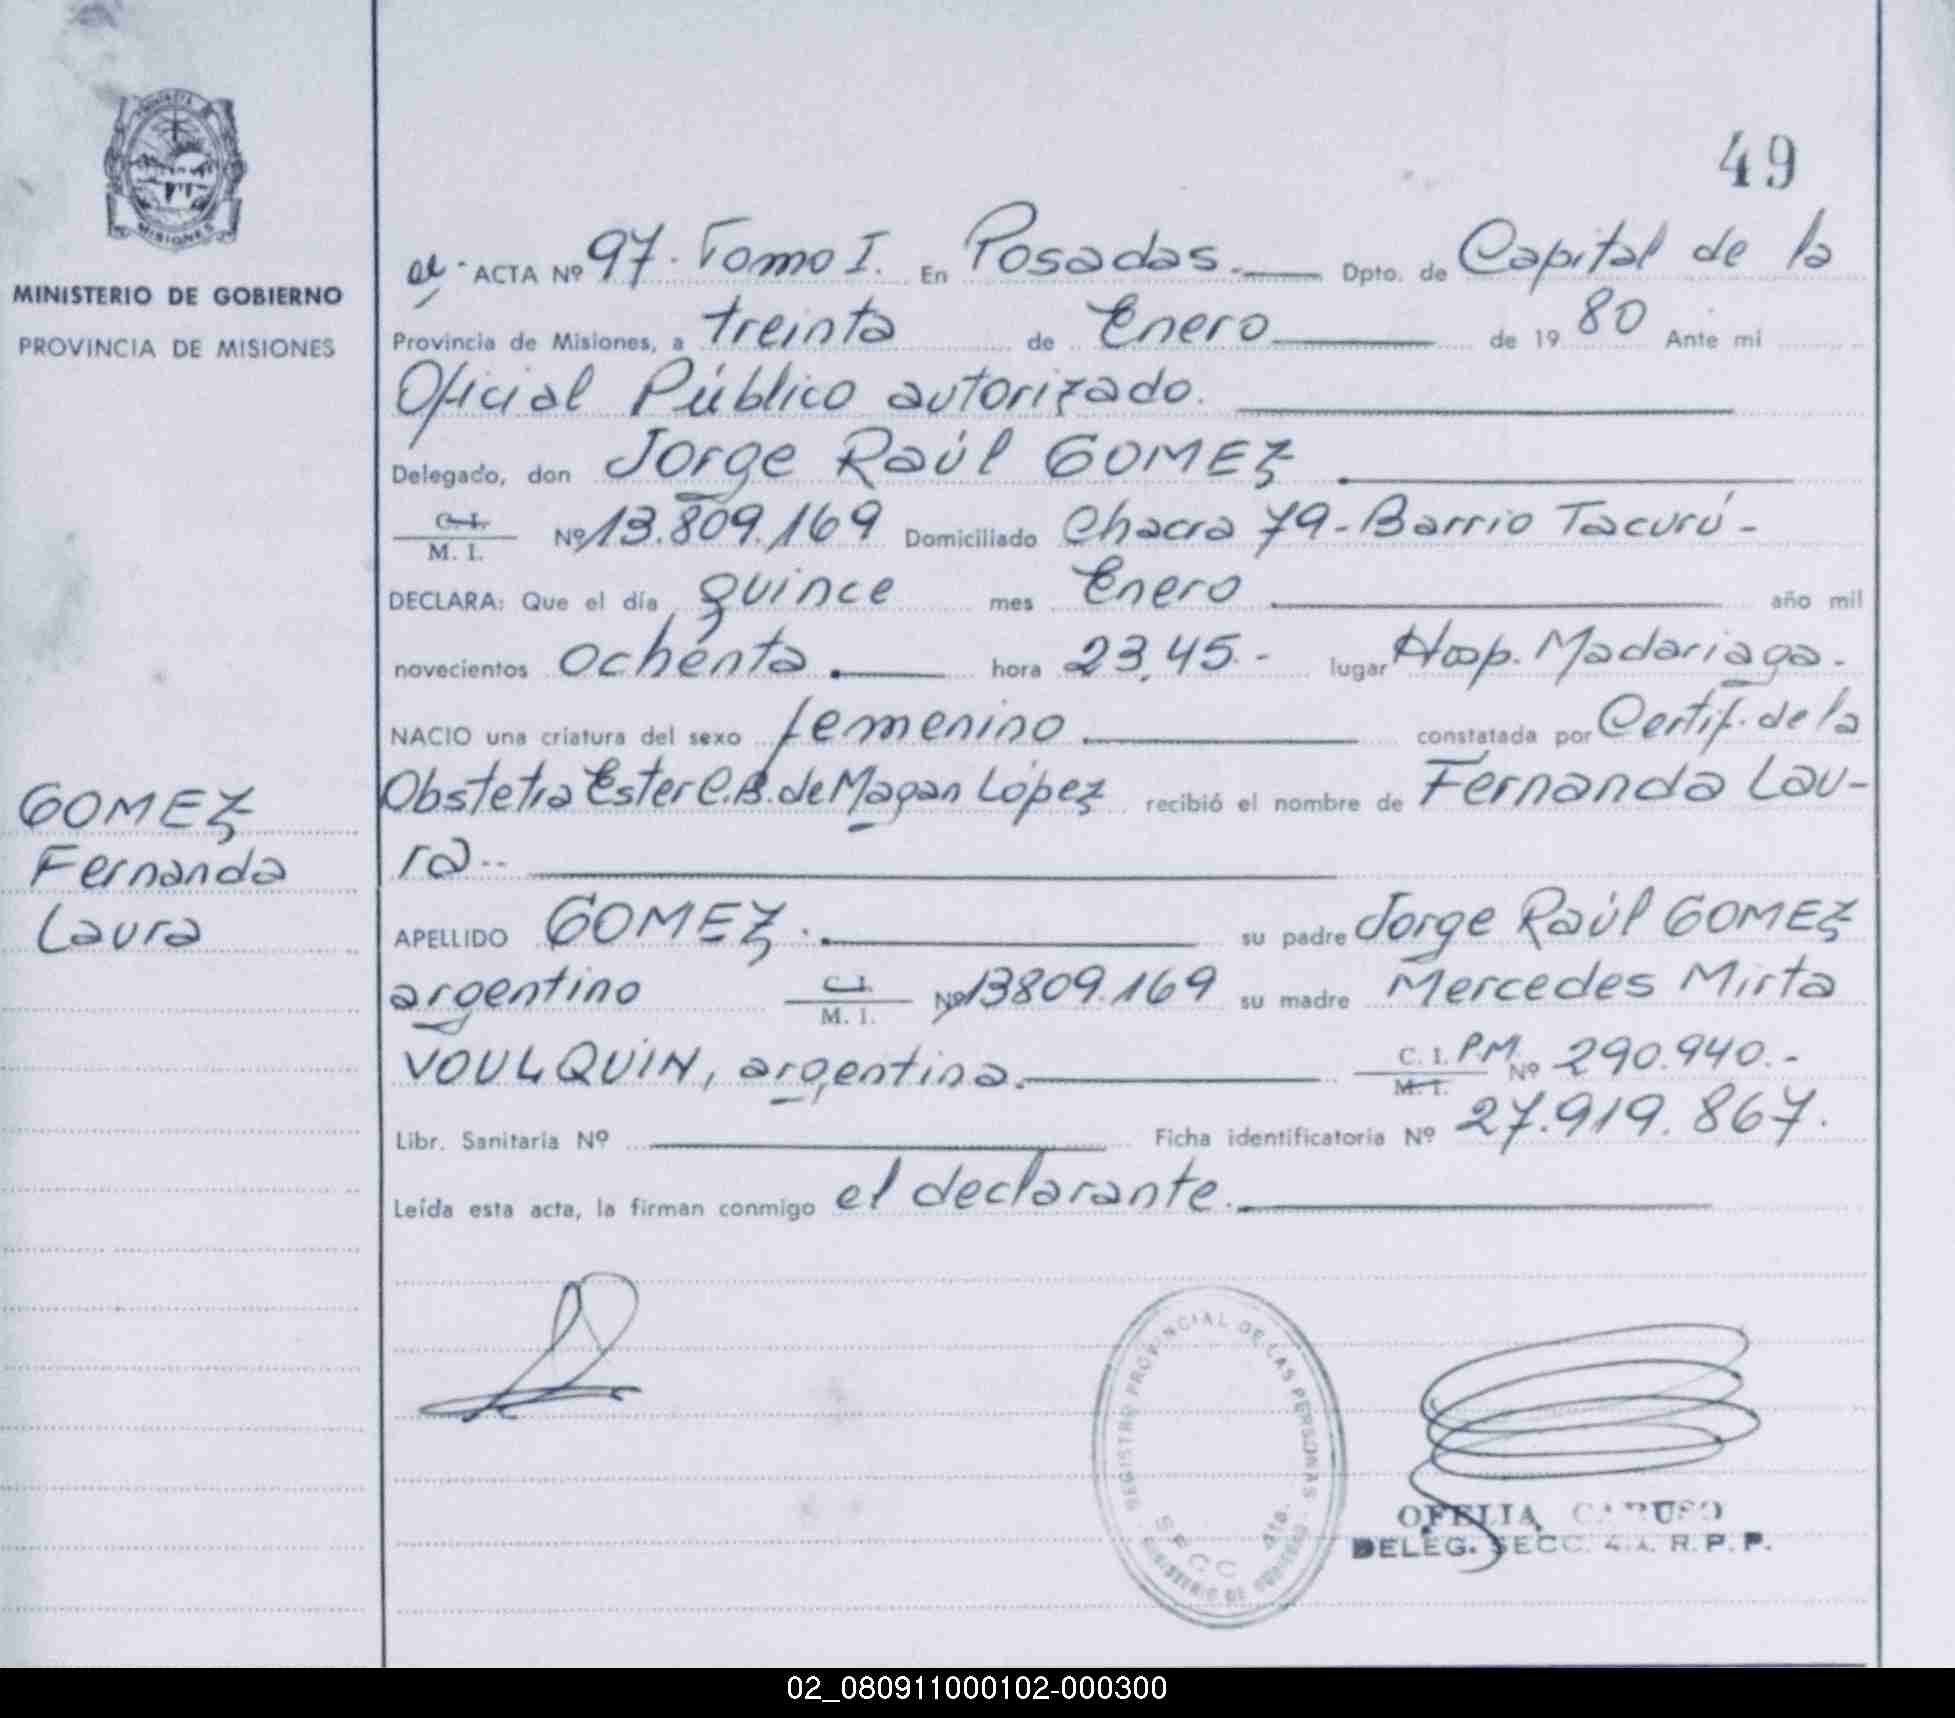 49
MINISTERIO DE GOBIERNO
PROVINCIA DE MISIONES
ACTA Nº 97. Tomo I. En Posadas. Dpto. de Capital de la
Provincia de Misiones, a treinta de Enero de 1980 Ante mi
Oficial Público autorizado.
Delegado, don Jorge Raúl GOMEZ
C. I. M. I. Nº 13.809.169 Domiciliado Chacra 79 - Barrio Tacurú -
DECLARA: Que el día quince mes Enero año mil
novecientos ochenta hora 23,45.- lugar Hosp. Madariaga.
NACIO una criatura del sexo femenino constatada por Certif. de la
Obstetra Ester C.B. de Magan López recibió el nombre de Fernanda Lau-
ra..
GOMEZ
Fernanda
Laura
APELLIDO GOMEZ. su padre Jorge Raúl GOMEZ
argentino C. I. M. I. Nº 13809.169 su madre Mercedes Mirta
VOULQUIN, argentina. C. I. P.M. M. I. Nº 290.940.-
Libr. Sanitaria Nº Ficha identificatoria Nº 27.919.867.
Leída esta acta, la firman conmigo el declarante.
REGISTRO PROVINCIAL DE LAS PERSONAS
SECC 4ta.
MINISTERIO DE GOBIERNO
OFELIA CARUSO
DELEG. SECC. 4.a. R.P.P.
02_080911000102-000300